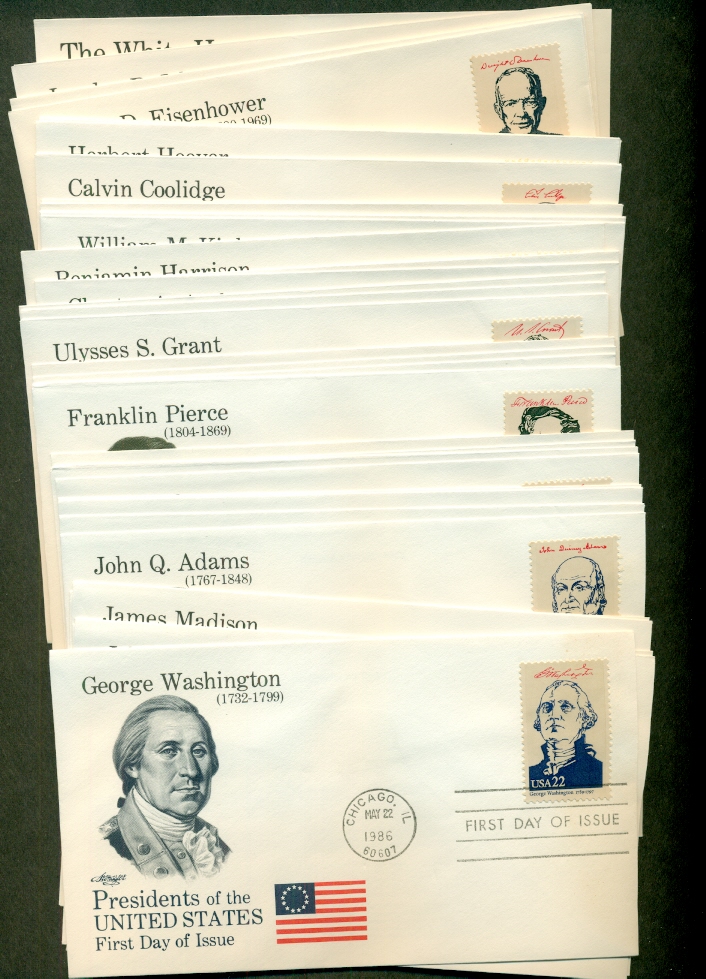 The White
D. Eisenhower
Dwight D Eisenhower
Herbert Hoover
Calvin Coolidge
William M
Benjamin Harrison
Ulysses S. Grant
Franklin Pierce
Franklin Pierce
(1804-1869)
John Q. Adams
John Quincy Adams
(1767-1848)
James Madison
George Washington
(1732-1799)
G Washington
USA22
George Washington
CHICAGO, IL
MAY 22
1986
60607
FIRST DAY OF ISSUE
Presidents of the
UNITED STATES
First Day of Issue